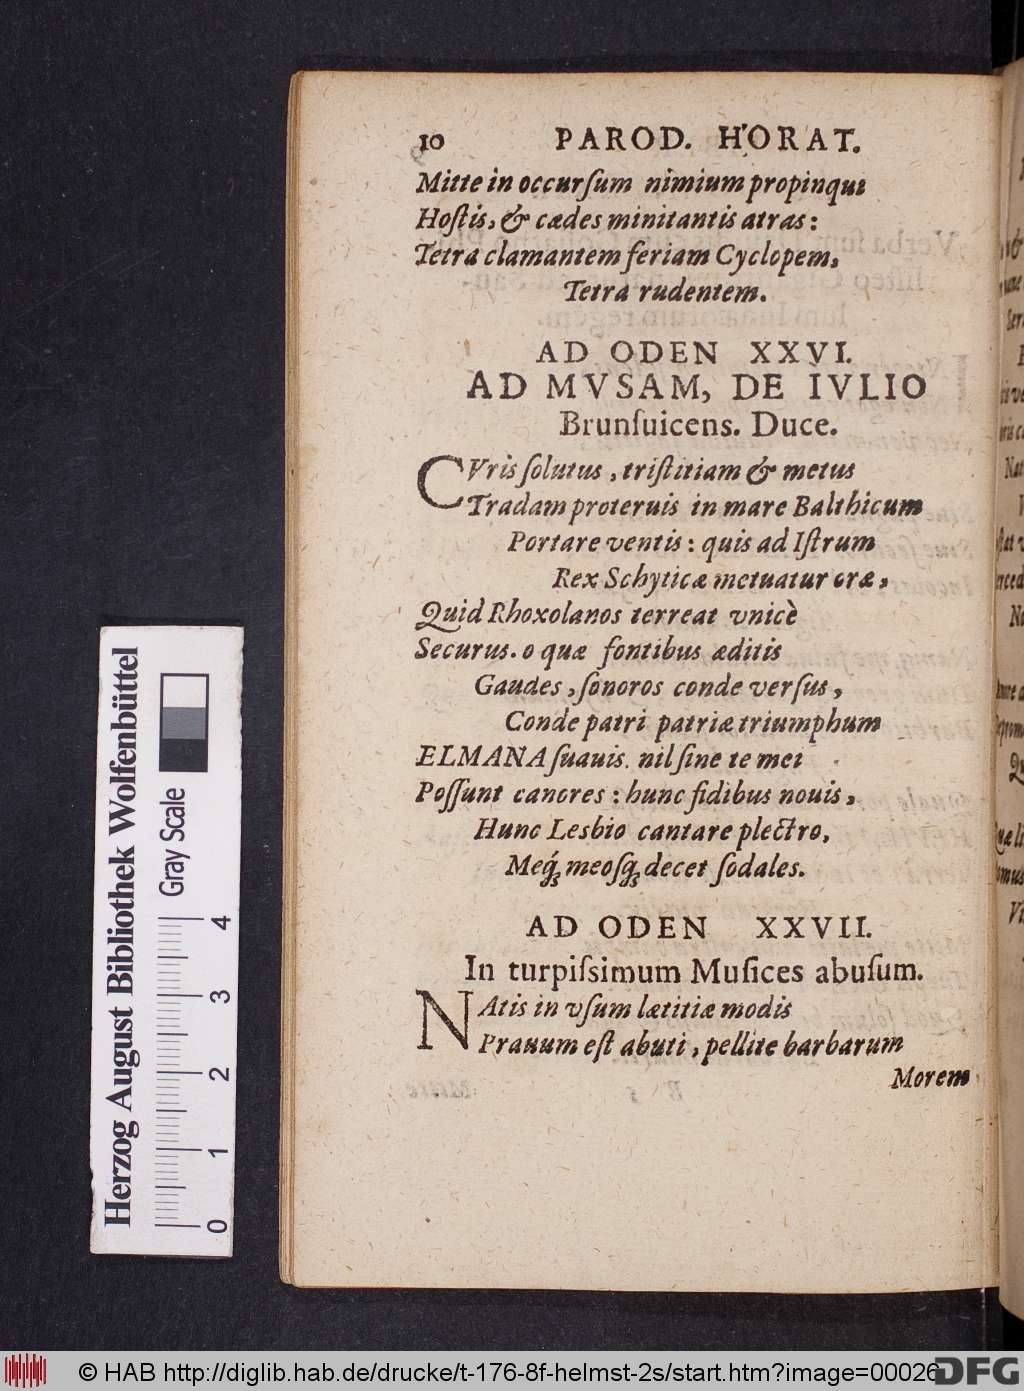 10 PAROD. HORAT.
Mitte in occurſum nimium propinqui
Hoſtis, & cædes minitantis atras:
Tetra clamantem feriam Cyclopem,
Tetra rudentem.
AD ODEN XXVI.
AD MVSAM, DE IVLIO
Brunſuicens. Duce.
CVris ſolutus, triſtitiam & metus
Tradam proteruis in mare Balthicum
Portare ventis: quis ad Iſtrum
Rex Schyticæ metuatur oræ,
Quid Rhoxolanos terreat vnicè
Securus. o quæ fontibus æditis
Gaudes, ſonoros conde verſus,
Conde patri patriæ triumphum
ELMANA ſuauis. nil ſine te mei
Poſſunt canores: hunc fidibus nouis,
Hunc Lesbio cantare plectro,
Meq́ꝫ meoſq́ꝫ decet ſodales.
AD ODEN XXVII.
In turpiſsimum Muſices abuſum.
NAtis in vſum lætitiæ modis
Prauum eſt abuti, pellite barbarum
Morem
Herzog August Bibliothek Wolfenbüttel
Gray Scale
0 1 2 3 4
© HAB http://diglib.hab.de/drucke/t-176-8f-helmst-2s/start.htm?image=00026
DFG